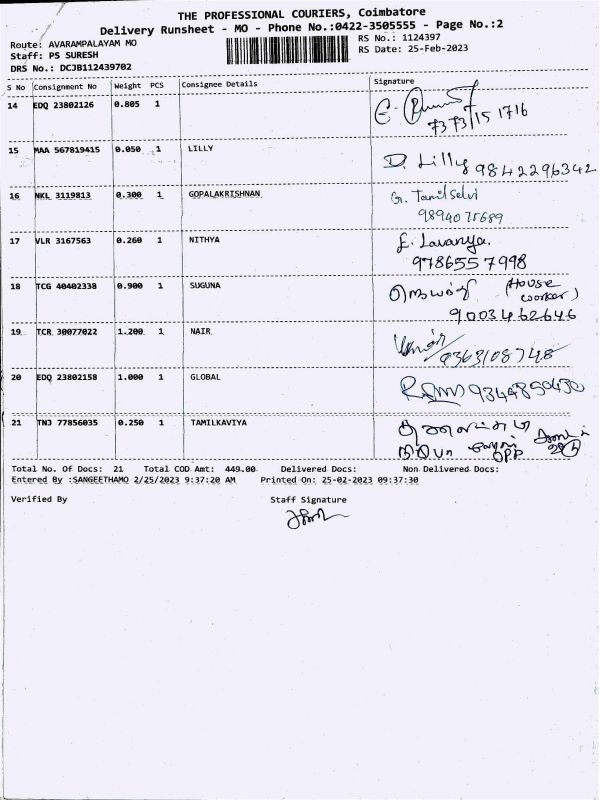 THE PROFESSIONAL COURIERS, Coimbatore
Delivery Runsheet - MO - Phone No.:0422-3505555 - Page No.:2
Route: AVARAMPALAYAM MO
RS No.: 1124397
Staff: PS SURESH
RS Date: 25-Feb-2023
DRS No.: DCJB112439702
S No Consignment No Weight PCS Consignee Details Signature
14 EDQ 23802126 0.805 1
73 73/15 1716
15 MAA 567819415 0.050 1 LILLY D. Lilly 9842296342
16 NKL 3119813 0.300 1 GOPALAKRISHNAN G. Tamilselvi
9894075689
17 VLR 3167563 0.260 1 NITHYA E. Lavanya.
9786557998
18 TCG 40402338 0.900 1 SUGUNA (House
worker)
9003462646
19 TCR 30077022 1.200 1 NAIR
9363108748
20 EDQ 23802158 1.000 1 GLOBAL
21 TNJ 77856035 0.250 1 TAMILKAVIYA
opp
Total No. Of Docs: 21 Total COD Amt: 449.00 Delivered Docs: Non Delivered Docs:
Entered By :SANGEETHAMO 2/25/2023 9:37:20 AM Printed On: 25-02-2023 09:37:30
Verified By Staff Signature